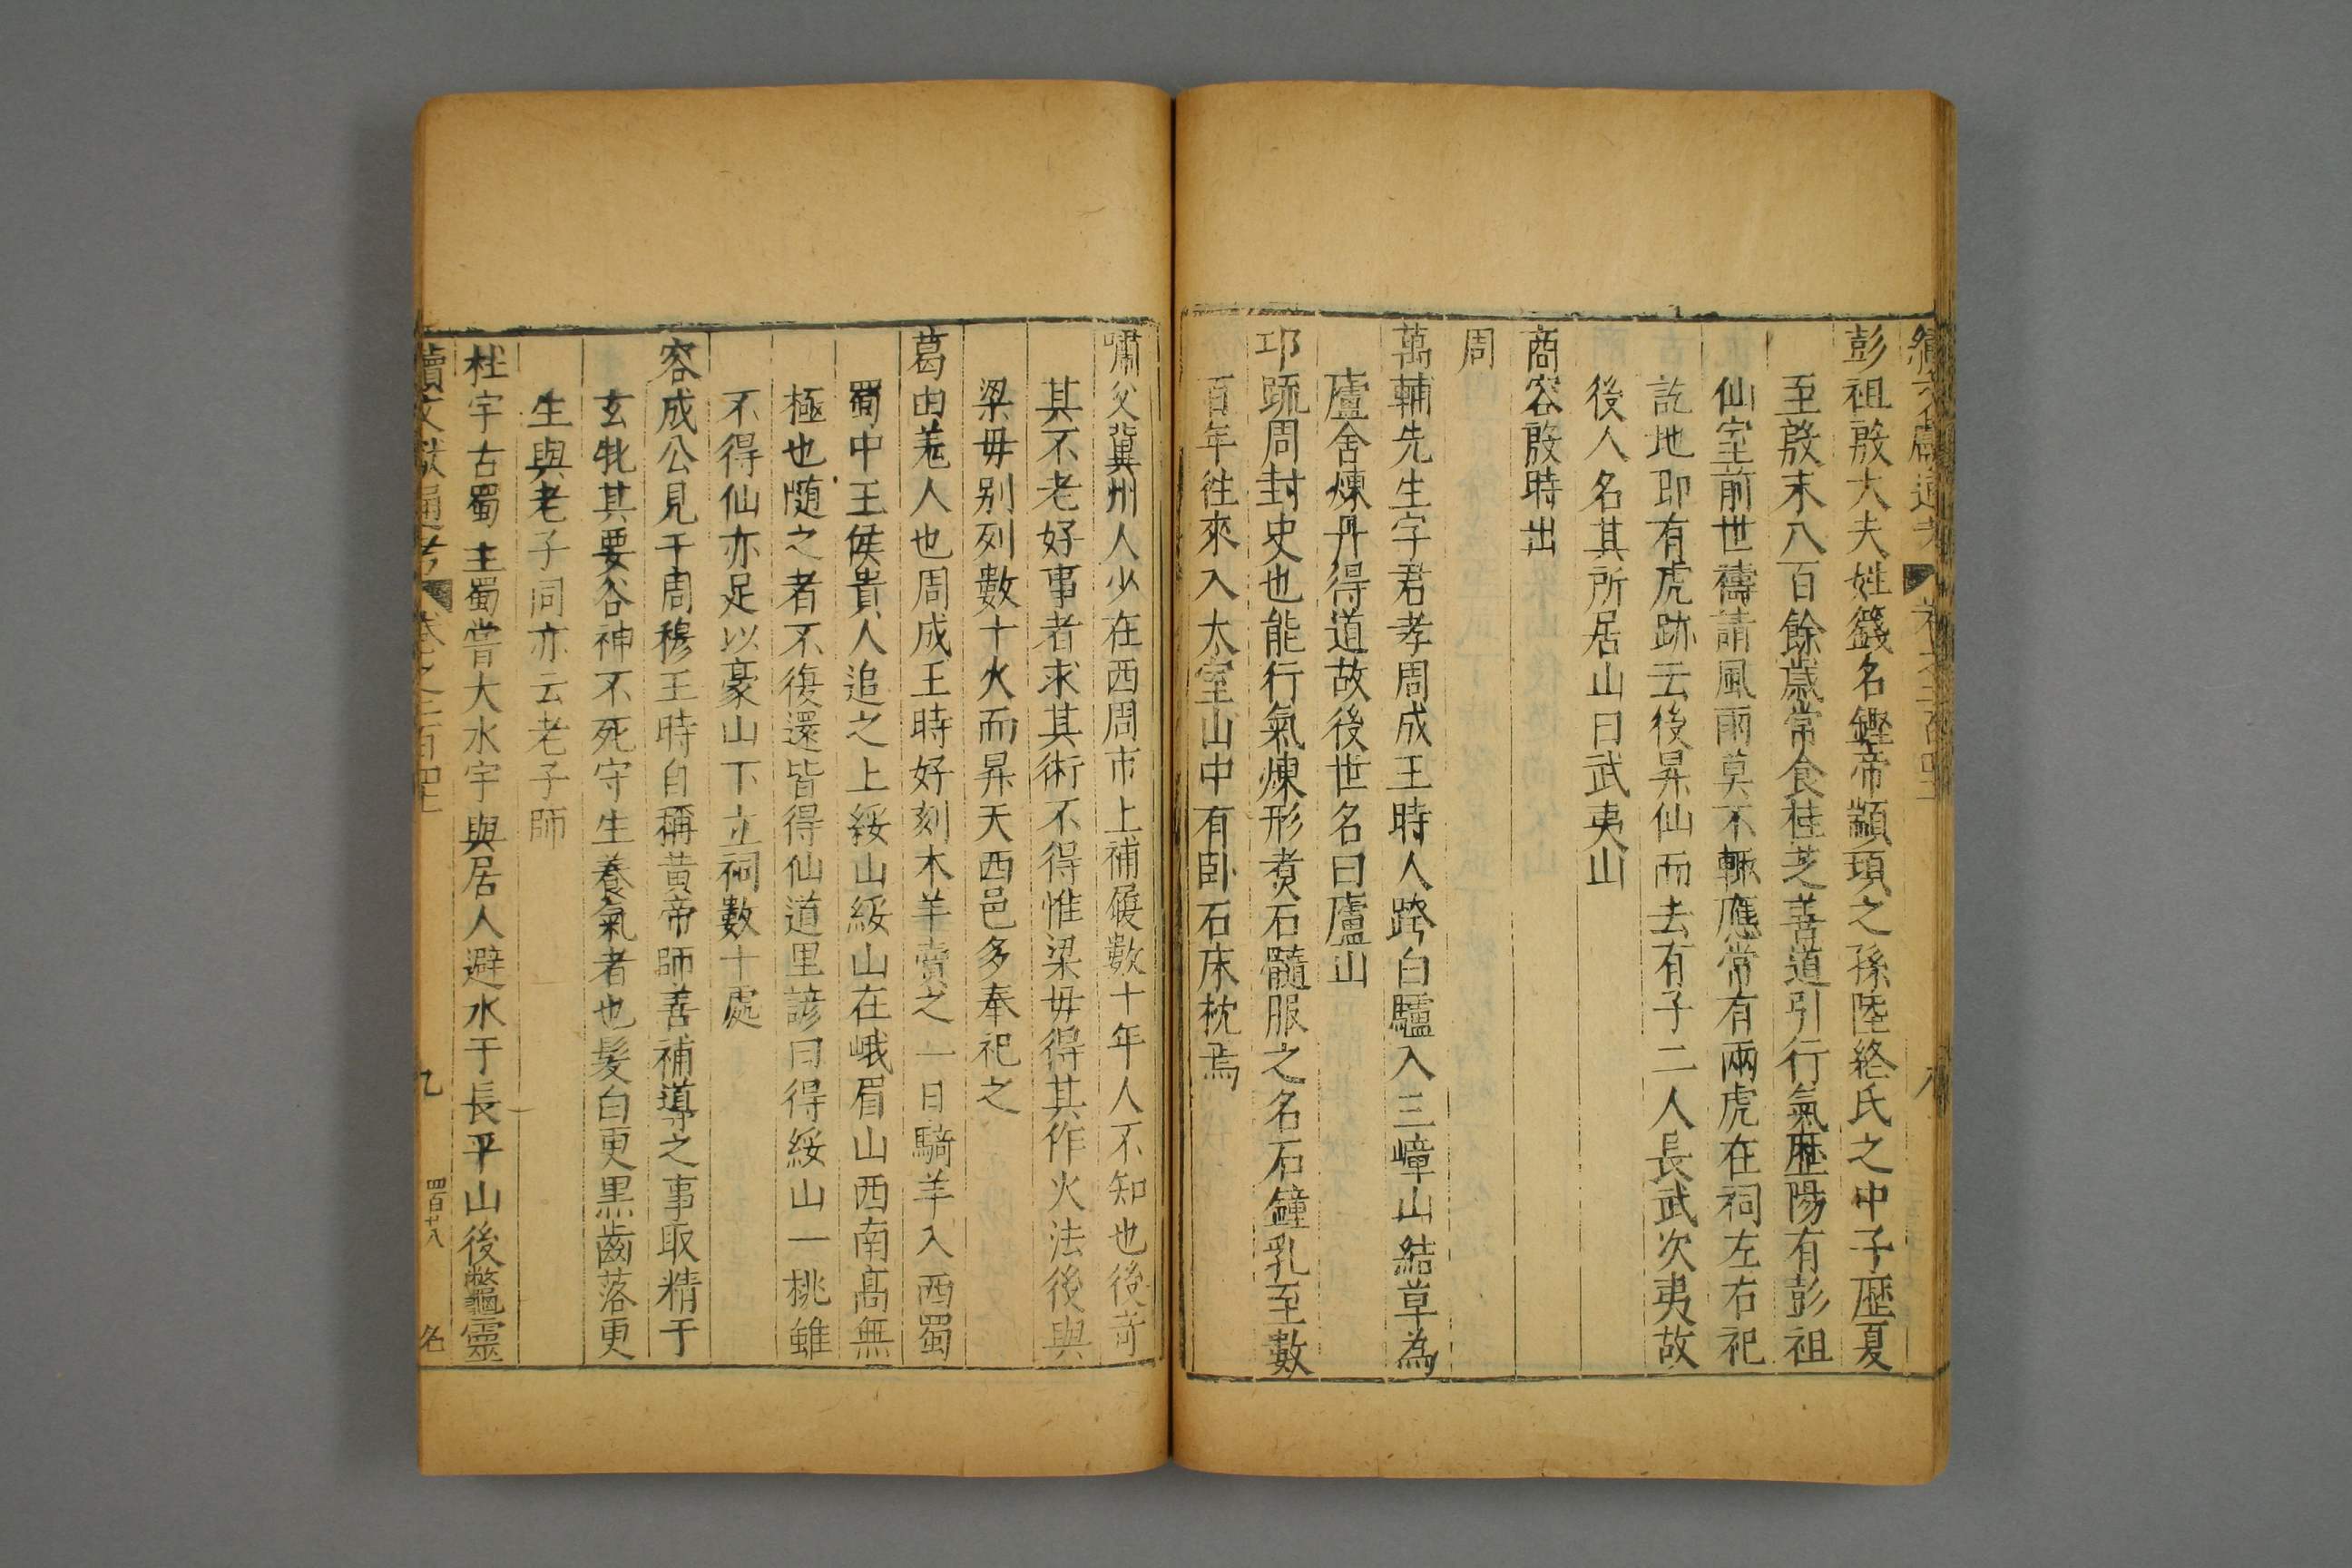 彭祖殷大夫姓籛名鏗帝顓頊之孫陸終氏之中子歷夏
至殷末八百餘歲常食桂芝善道引行氣歷陽有彭祖
仙室前世禱請風雨莫不輒應常有兩虎在祠左右祀
訖地即有虎跡云後昇仙而去有子二人長武次夷故
後人名其所居山曰武夷山
商容殷時出
周
萬輔先生字君孝周成王時人跨白驢入三嶂山結草為
廬舍煉丹得道故後世名曰廬山
邛疏周封史也能行氣煉形煑石髓服之名石鐘乳至數
百年徃來入太室山中有卧石床枕焉
嘯父兾州人少在西周市上補履數十年人不知也後奇
其不老好事者求其術不得惟梁毋得其作火法後與
梁毋别列數十火而昇天西邑多奉祀之
葛由羗人也周成王時好刻木羊賣之一日騎羊入西蜀
蜀中王侯貴人追之上綏山綏山在峨眉山西南髙無
極也随之者不復還皆得仙道里諺曰得綏山一桃雖
不得仙亦足以豪山下立祠數十處
容成公見于周穆王時自稱黃帝師善補導之事取精于
玄牝其要谷神不死守生養氣者也髮白更黒齒落更
生與老子同亦云老子師
杜宇古蜀主蜀嘗大水宇與居人避水于長平山後鼈靈
續文獻通考 卷之二百四十 九 四百廿八